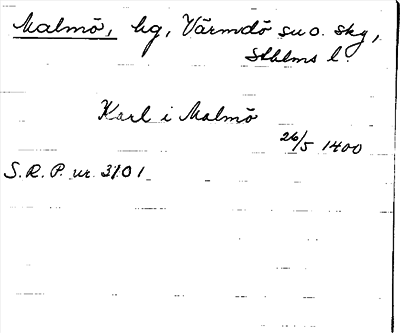 Malmö, hg, Värmdö su o. skg,
Sthlms l.
Karl i Malmö
26/5 1400
S.R.P. nr. 3101